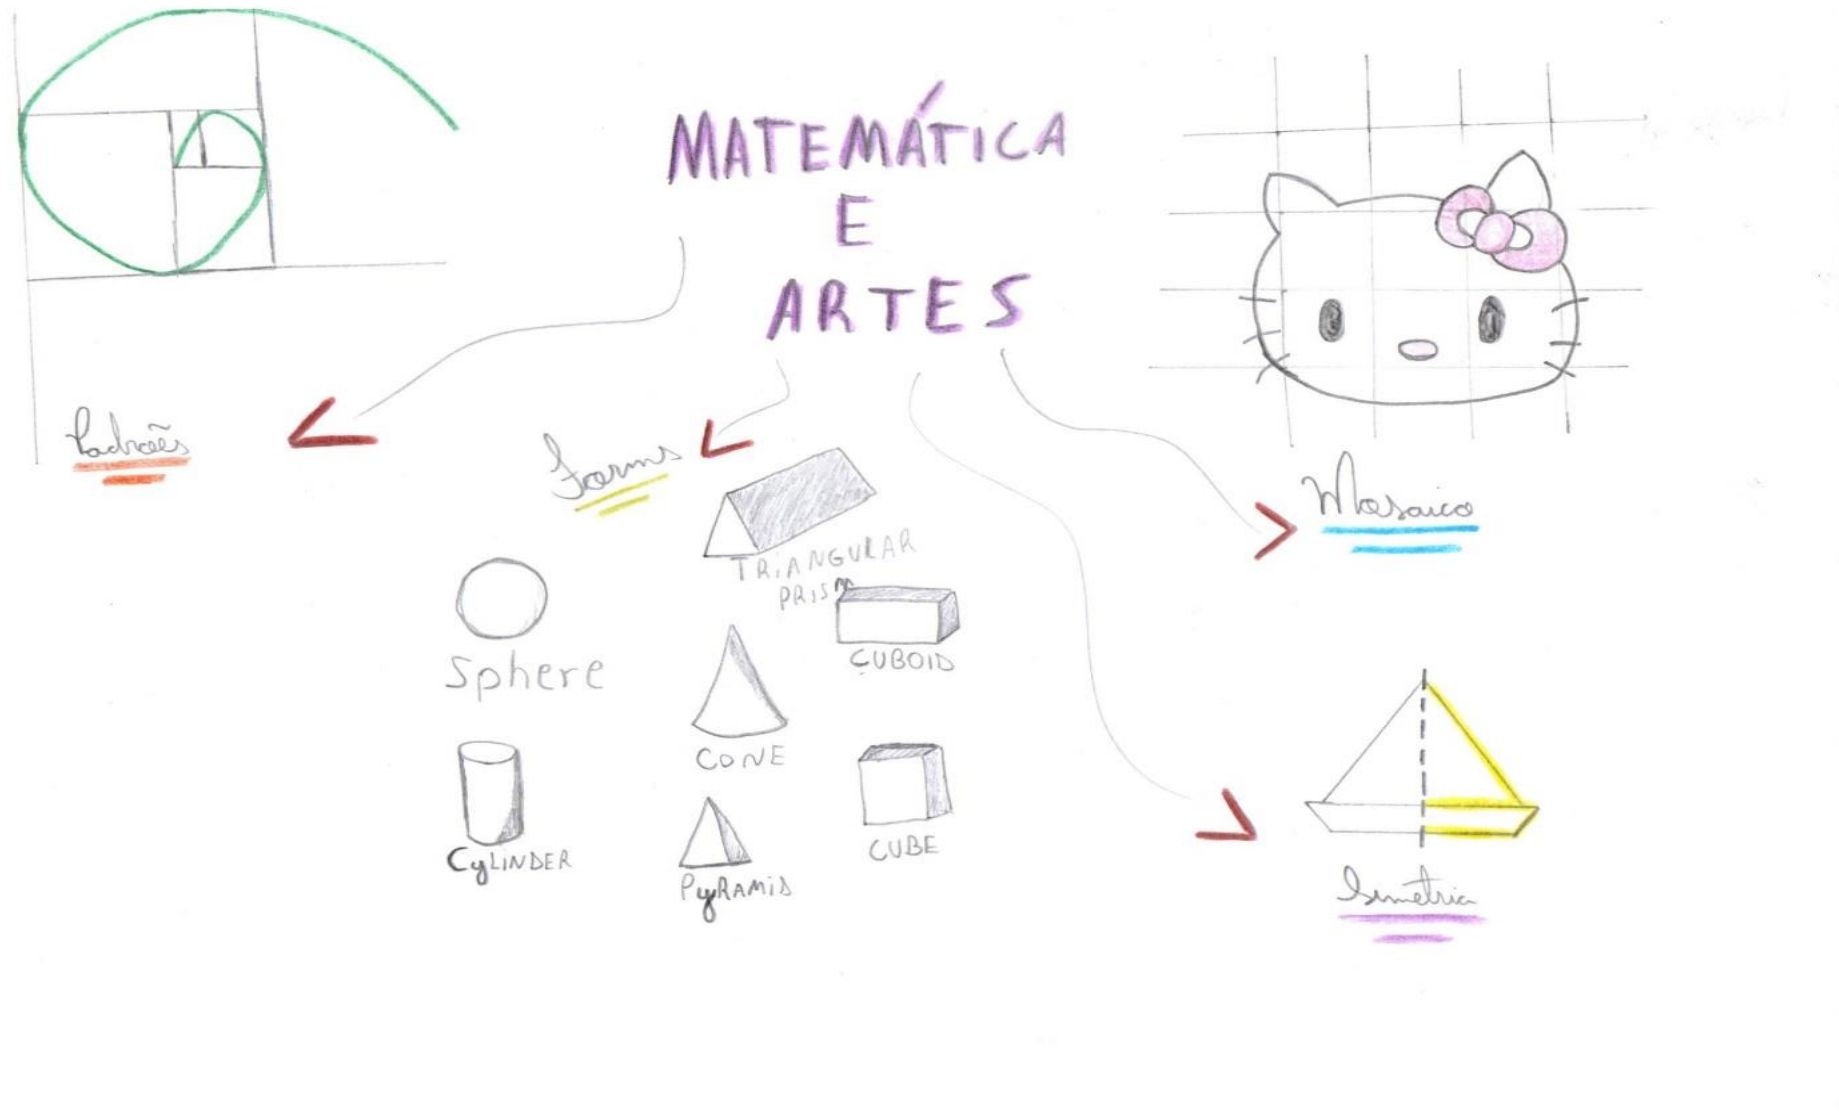 MATEMÁTICA
E
ARTES
Padrões
Forms
Mosaico
TRIANGULAR
PRISM
Sphere
CUBOID
CONE
CYLINDER
PyRAMID
CUBE
Simetria